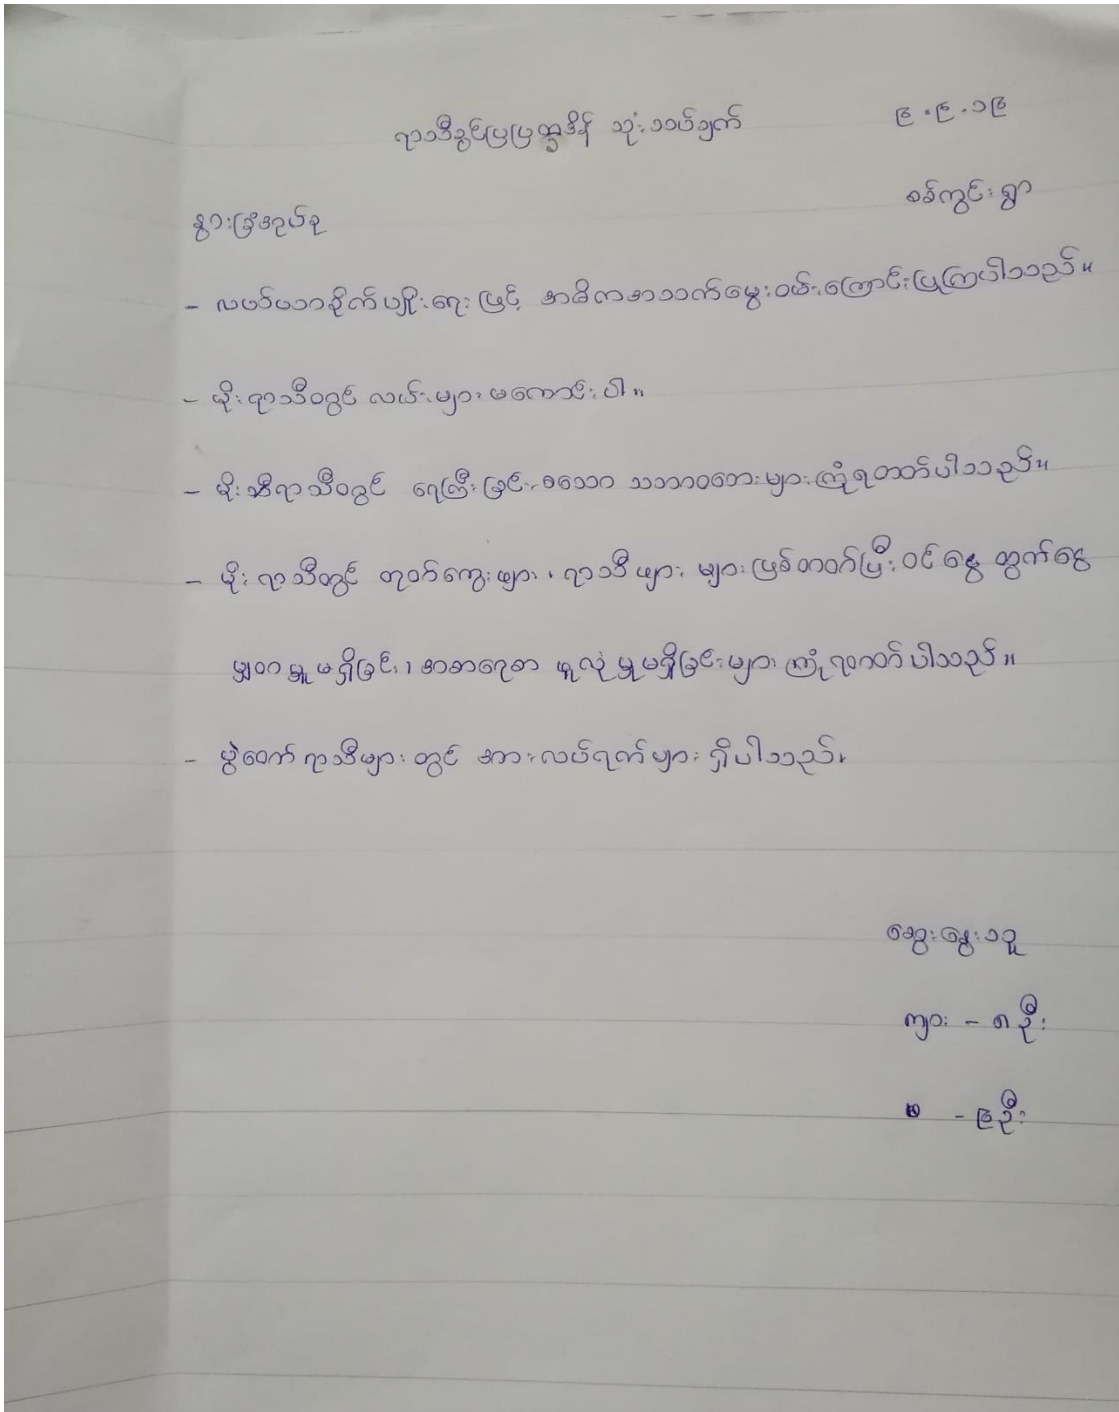 ရာသီခွင်ပြပြက္ခဒိန် သုံးသပ်ချက်
၉.၉.၁၉
စစ်ကွင်းရွာ
နွားခြံအုပ်စု
- လယ်ယာစိုက်ပျိုးရေးဖြင့် အဓိကအသက်မွေးဝမ်းကြောင်းပြုကြပါသည်။
- မိုးရာသီတွင် လမ်းများမကောင်းပါ။
- မိုးရာသီတွင် ရေကြီးခြင်း စသော သဘာဝဘေးများကြုံရတတ်ပါသည်။
- မိုးရာသီတွင် တုပ်ကွေးဖျား၊ ရာသီဖျား များဖြစ်တတ်ပြီး ဝင်ငွေ ထွက်ငွေ
မျှတမှုမရှိခြင်း၊ အစားရေစာ ဖူလုံမှုမရှိခြင်းများ ကြုံရတတ်ပါသည်။
- ပွဲတော်ရာသီများတွင် အားလပ်ရက်များ ရှိပါသည်။
ဆွေးနွေးသူ
ကျား - ၈ ဦး
မ - ၉ ဦး